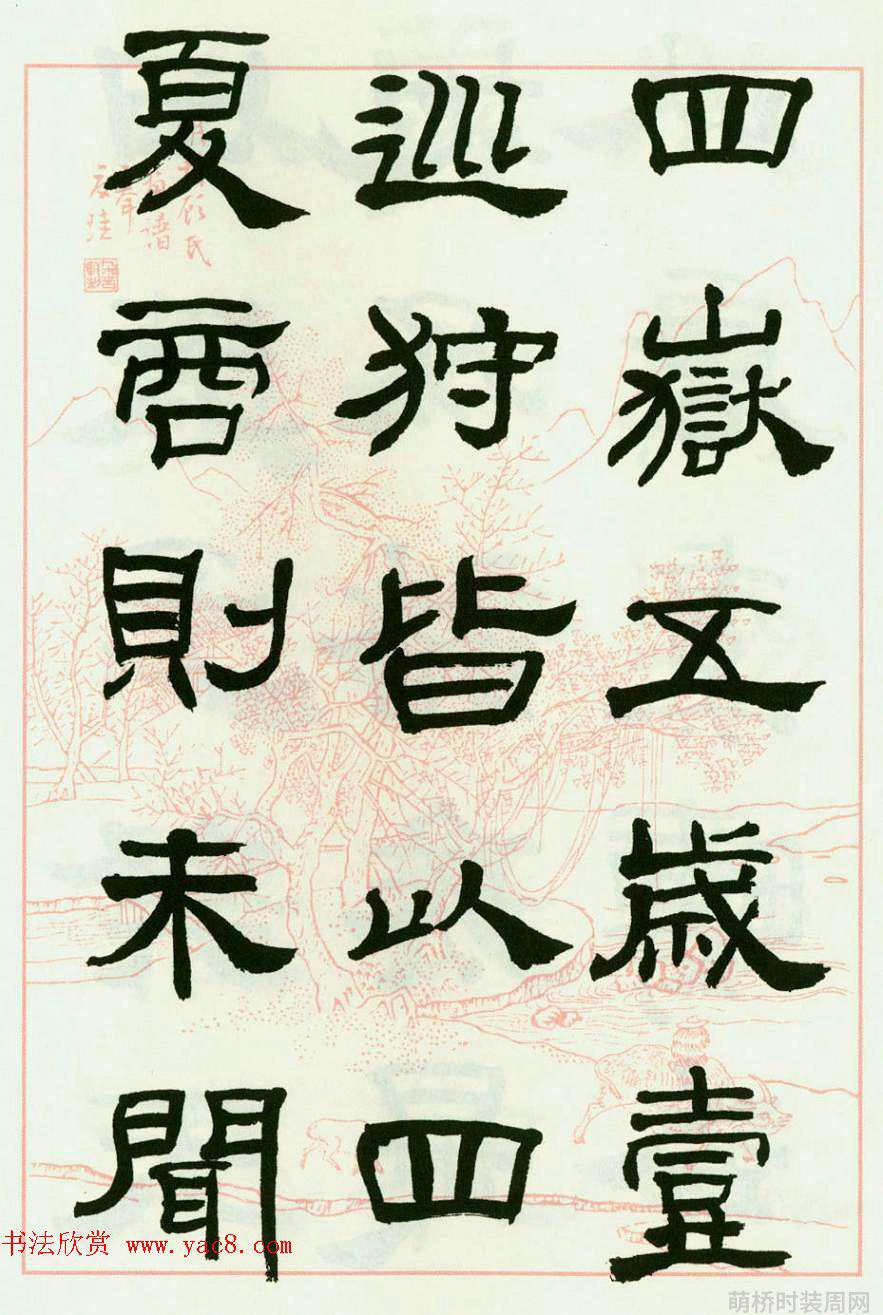 四嶽五歲壹
巡狩皆以四
夏商則未聞
顧氏
畫譜
书法欣赏 www.yac8.com
萌桥时装周网